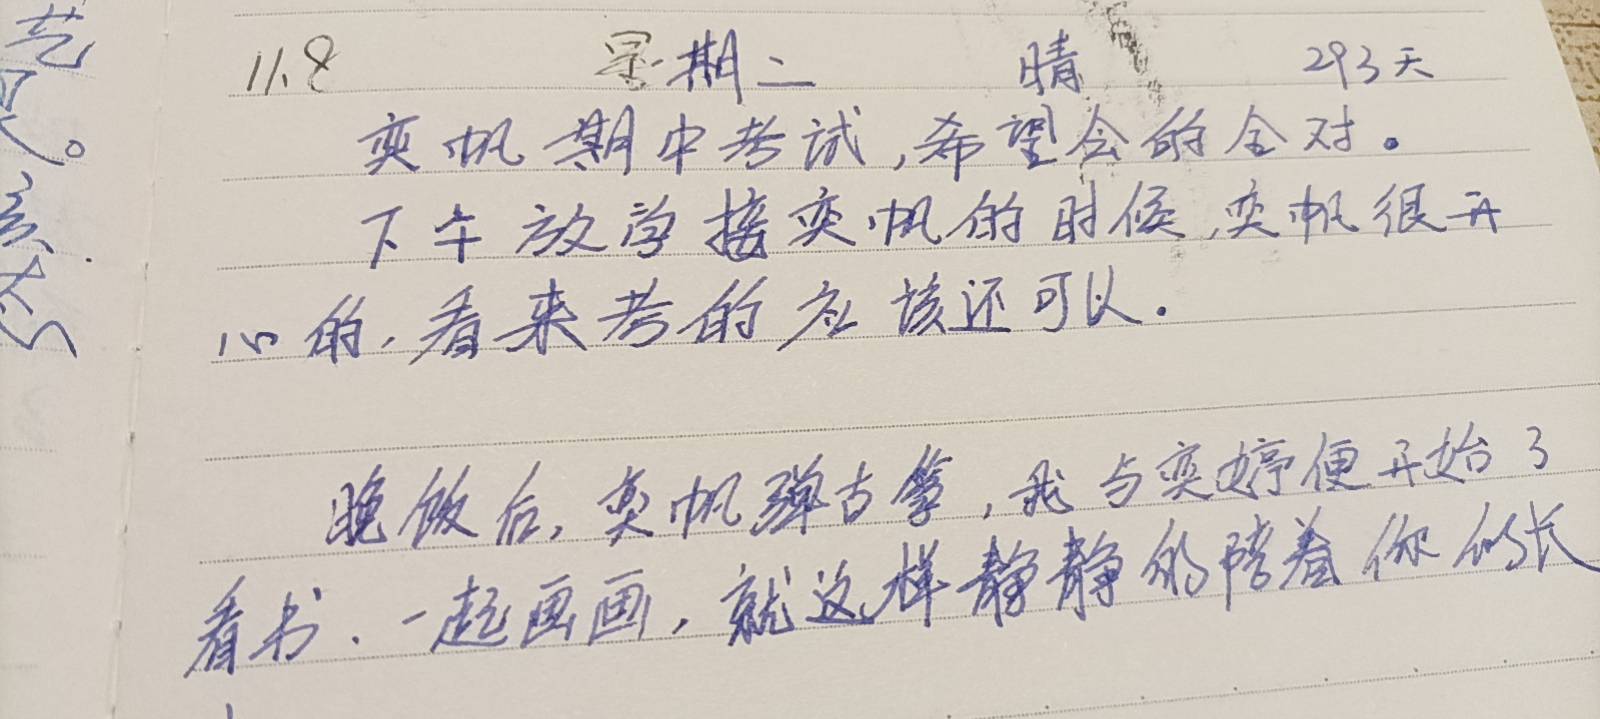 11.8 星期二 晴 293天
奕帆期中考试,希望会的全对。
下午放学接奕帆的时候,奕帆很开
心的,看来考的应该还可以.
晚饭后,奕帆弹古筝,我与奕婷便开始了
看书、一起画画,就这样静静的陪着你们长